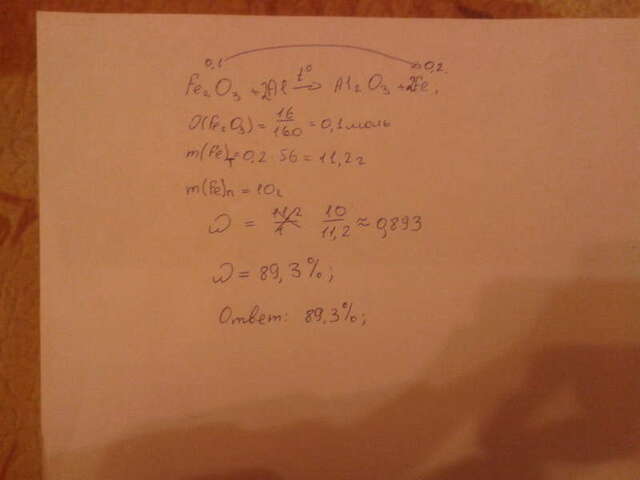 0,1 0,2
Fe₂O₃ + 2Al t° → Al₂O₃ + 2Fe;
υ(Fe₂O₃) = 16/160 = 0,1 моль
m(Fe)т = 0,2 · 56 = 11,2 г
m(Fe)п = 10г
ω = 10/11,2 ≈ 0,893
ω = 89,3%;
Ответ: 89,3%;